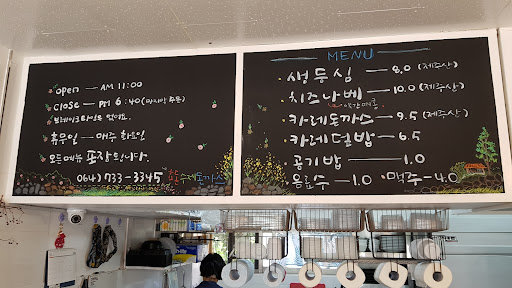 open — AM 11:00
close — PM 6:40 (마지막 주문)
브레이크 타임은 없어요.
휴무일 — 매주 화요일
모든메뉴 포장 됩니다.
064) 733-3345 효돈수제돈까스
MENU
· 생등심 — 8.0 (제주산)
· 치즈나베 — 10.0 (제주산)
· 카레돈까스 — 9.5 (제주산)
· 카레덮밥 — 6.5
· 공기밥 — 1.0
· 음료수 — 1.0 · 맥주 — 4.0